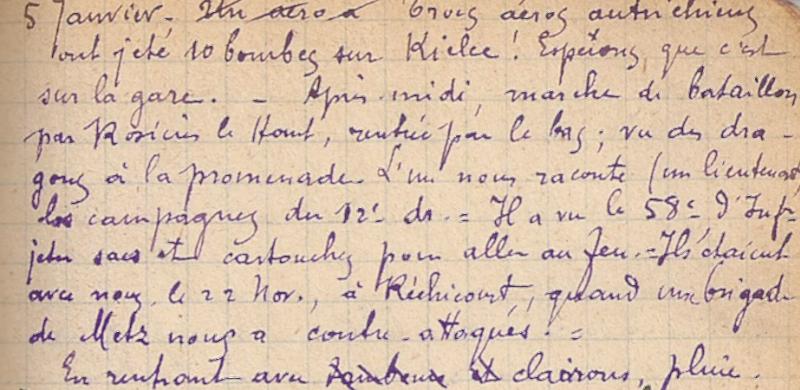 5 Janvier. Un aéro a Trois aéros autrichiens
ont jeté 10 bombes sur Kielce ! Espérons, que c'est
sur la gare. _ Après-midi, marche de bataillon
par Rosières le Haut, rentrée par le bas ; vu des dra-
gons à la promenade. L'un nous raconte (un lieutenant)
les campagnes du 12e dr. = Il a vu le 58e d'Inf.
jeter sacs et cartouches pour aller au feu. = Ils étaient
avec nous, le 22 Nov., à Réchicourt, quand une brigade
de Metz nous a contre-attaqués. =
En rentrant avec tambours et clairons, pluie.